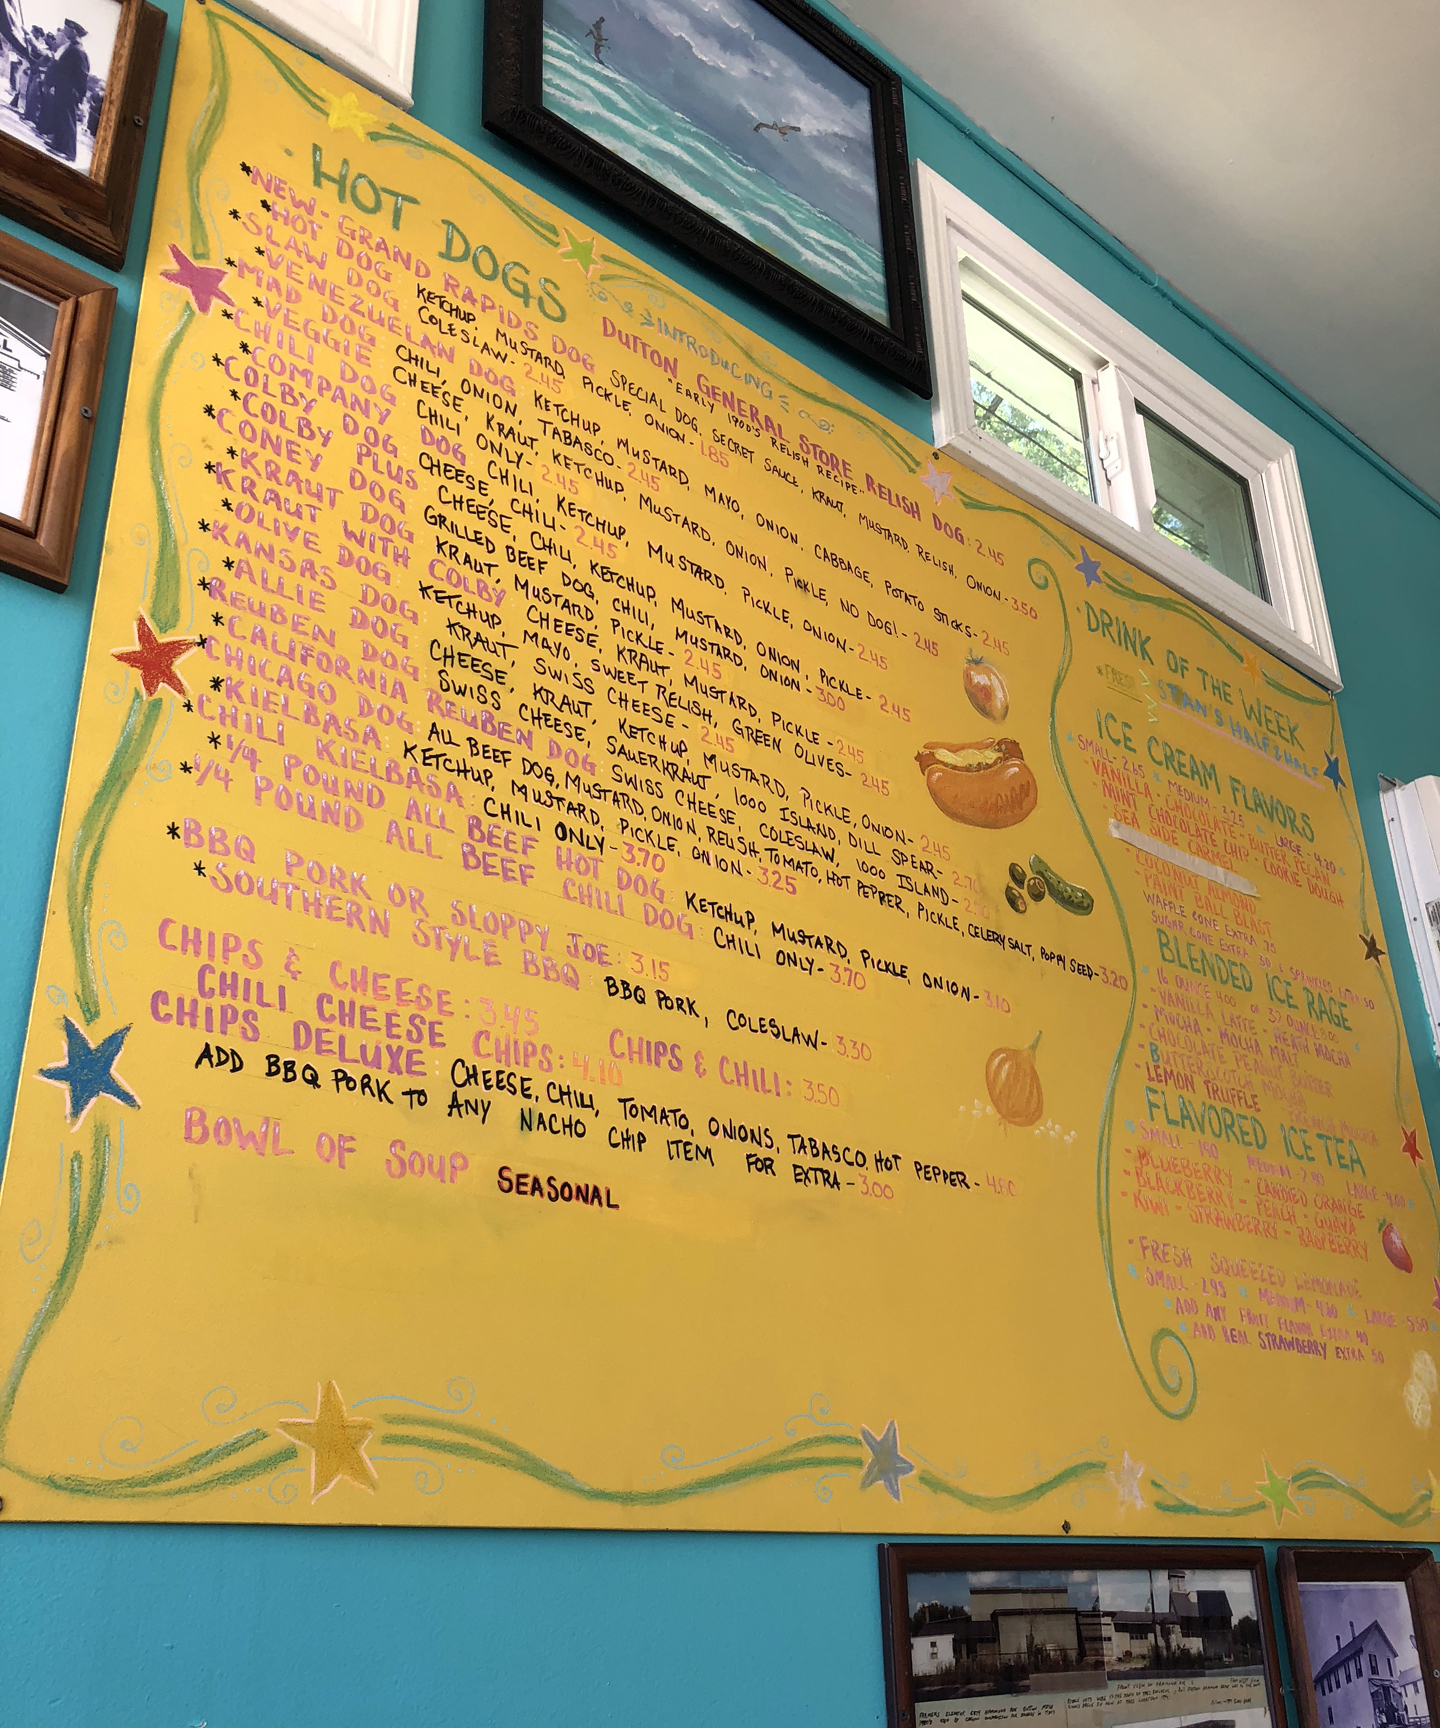 HOT DOGS
INTRODUCING
DUTTON GENERAL STORE RELISH DOG: 2.45
"EARLY 1900'S RELISH RECIPE"
*NEW-GRAND RAPIDS DOG SPECIAL DOG, SECRET SAUCE, KRAUT, MUSTARD, RELISH, ONION-3.50
*HOT DOG KETCHUP, MUSTARD, PICKLE, ONION-1.85
*SLAW DOG COLESLAW-2.45
*VENEZUELAN DOG: KETCHUP, MUSTARD, MAYO, ONION, CABBAGE, POTATO STICKS-2.45
*MAD DOG CHILI, ONION, TABASCO-2.45
*VEGGIE CHEESE, KRAUT, KETCHUP, MUSTARD, ONION, PICKLE, NO DOG!-2.45
*CHILI DOG CHILI ONLY-2.45
*COMPANY DOG CHILI, KETCHUP, MUSTARD, PICKLE, ONION-2.45
*COLBY DOG CHEESE, CHILI-2.45
*COLBY PLUS CHEESE, CHILI, KETCHUP, MUSTARD, ONION, PICKLE-2.45
*CONEY DOG GRILLED BEEF DOG, CHILI, MUSTARD, ONION-3.00
*KRAUT DOG KRAUT, MUSTARD, PICKLE-2.45
*KRAUT WITH COLBY CHEESE, KRAUT, MUSTARD, PICKLE-2.45
*OLIVE DOG KETCHUP, MAYO, SWEET RELISH, GREEN OLIVES-2.45
*KANSAS DOG KRAUT, SWISS CHEESE-2.45
*ALLIE DOG CHEESE, KRAUT, KETCHUP, MUSTARD, PICKLE, ONION-2.45
*REUBEN DOG SWISS CHEESE, SAUERKRAUT, 1000 ISLAND, DILL SPEAR-
*CALIFORNIA REUBEN DOG: SWISS CHEESE, COLESLAW, 1000 ISLAND-
*CHICAGO DOG: ALL BEEF DOG, MUSTARD, ONION, RELISH, TOMATO, HOT PEPPER, PICKLE, CELERY SALT, POPPY SEED-3.20
*KIELBASA: KETCHUP, MUSTARD, PICKLE, ONION-3.25
*CHILI KIELBASA: CHILI ONLY-3.70
*1/4 POUND ALL BEEF HOT DOG: KETCHUP, MUSTARD, PICKLE, ONION-3.10
*1/4 POUND ALL BEEF CHILI DOG: CHILI ONLY-3.70
*BBQ PORK OR SLOPPY JOE: 3.15
*SOUTHERN STYLE BBQ: BBQ PORK, COLESLAW-3.30
CHIPS & CHEESE: 3.45 CHIPS & CHILI: 3.50
CHILI CHEESE CHIPS: 4.10
CHIPS DELUXE: CHEESE, CHILI, TOMATO, ONIONS, TABASCO, HOT PEPPER-
ADD BBQ PORK TO ANY NACHO CHIP ITEM FOR EXTRA-3.00
BOWL OF SOUP SEASONAL
DRINK OF THE WEEK
*FRESH STAN'S HALF & HALF
ICE CREAM FLAVORS
SMALL-2.65 * MEDIUM-3.25 * LARGE-4.20
-VANILLA-CHOCOLATE-BUTTER PECAN
-MINT CHOCOLATE CHIP-COOKIE DOUGH
-SEA SIDE CARMEL
-COCONUT ALMOND
-PAINT BALL BLAST
WAFFLE CONE EXTRA .75
SUGAR CONE EXTRA .30 & SPRINKLES EXTRA .50
BLENDED ICE RAGE
*16 OUNCE 4.00 OR 32 OUNCE 8.00
-VANILLA LATTE-HEATH MOCHA
-MOCHA-MOCHA MALT
-CHOCOLATE PEANUT BUTTER
-BUTTERSCOTCH MOCHA
-LEMON TRUFFLE
FLAVORED ICE TEA
*SMALL-1.90 MEDIUM-2.90 LARGE-4.00
-BLUEBERRY-CANDIED ORANGE
-BLACKBERRY-PEACH-GUAVA
-KIWI-STRAWBERRY-RASPBERRY
-FRESH SQUEEZED LEMONADE
*SMALL-2.95 * MEDIUM-4.30 * LARGE-5.50
*ADD ANY FRUIT FLAVOR EXTRA 40
*ADD REAL STRAWBERRY EXTRA 50